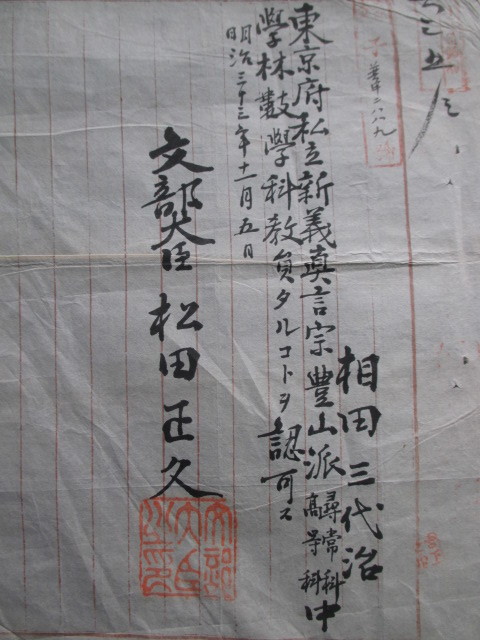 相田三代治
東京府私立新義真言宗豊山派尋常科高等科中
學林數學科教員タルコトヲ認可ス
明治三十三年十一月五日
文部大臣 松田正久
文部大臣之印